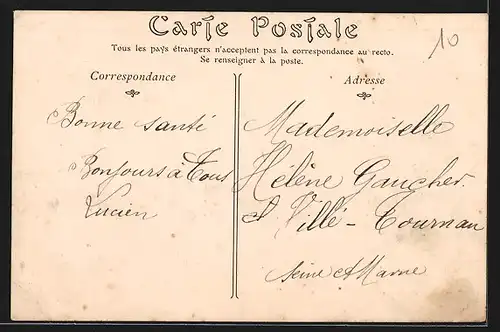 Carte Postale
Tous les pays étrangers n'acceptent pas la correspondance au recto.
Se renseigner à la poste.
10
Correspondance
Adresse
Bonne santé
Bonjours à Tous
Lucien
Mademoiselle
Hélène Gaucher
Villé - Tournan
Seine et Marne